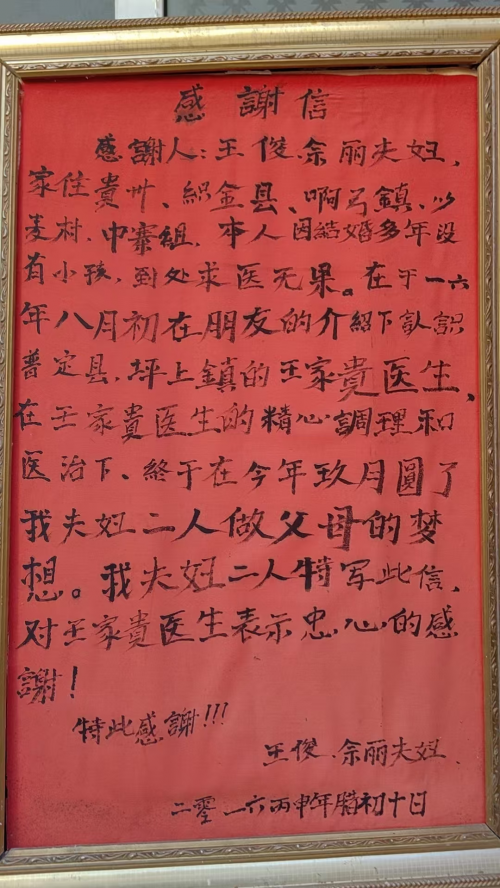 感謝信
感謝人：王俊.佘丽夫妇，
家住貴州、織金县、啊弓鎮、以
麦村，中寨組，本人因結婚多年没
有小孩，到处求医无果。在于一六
年八月初在朋友的介紹下認識
普定县，坪上鎮的王家貴医生、
在王家貴医生的精心調理和
医治下、終于在今年玖月圓了
我夫妇二人做父母的梦
想。我夫妇二人特写此信，
对王家貴医生表示忠心的感
謝！
特此感謝!!!
王俊、佘丽夫妇.
二零一六丙申年腊初十日